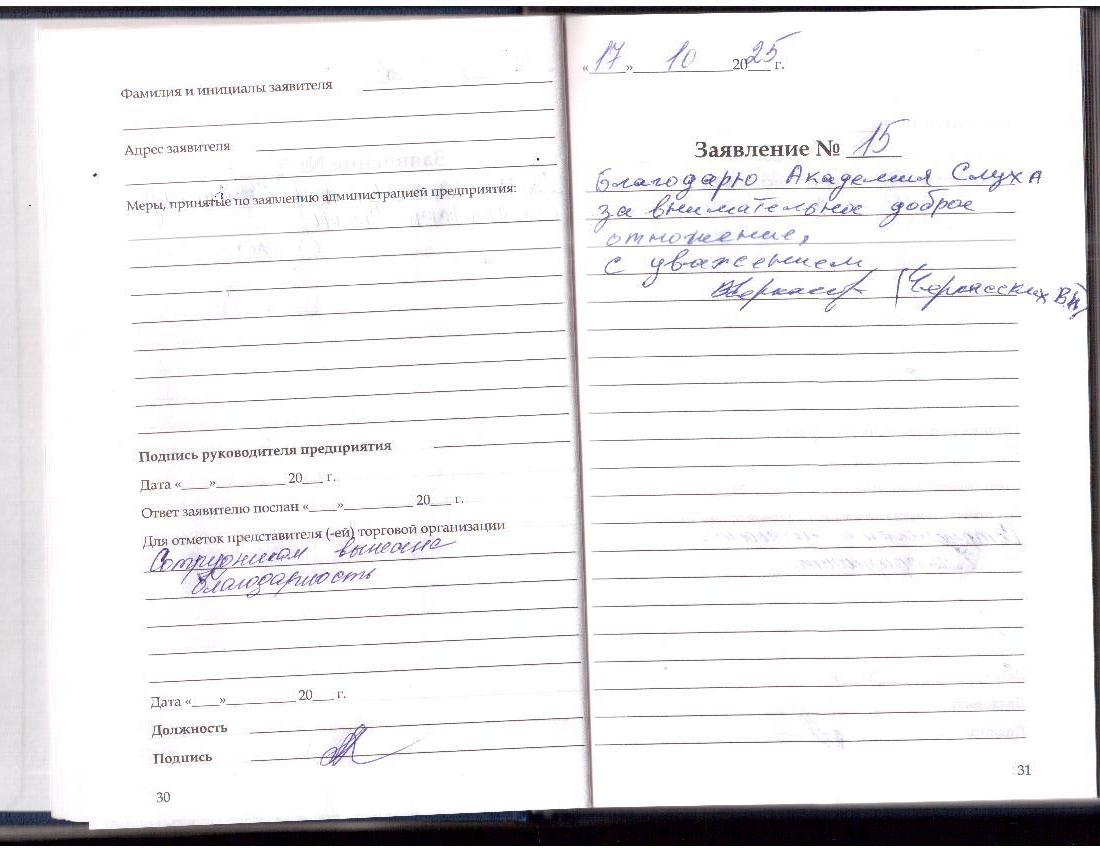 Фамилия и инициалы заявителя
Адрес заявителя
Меры, принятые по заявлению администрацией предприятия:
Подпись руководителя предприятия
Дата «____»__________ 20___ г.
Ответ заявителю послан «____»__________ 20___ г.
Для отметок представителя (-ей) торговой организации
Сотрудникам вынесена
благодарность
Дата «____»__________ 20___ г.
Должность
Подпись
30
«17» 10 2025 г.
Заявление № 15
Благодарю Академия Слуха
за внимательное доброе
отножение,
с уважением
(Черкасских В.А)
31